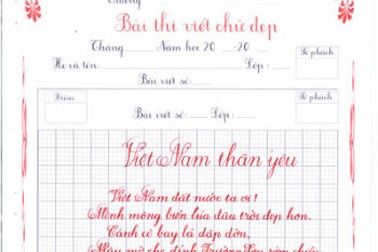 Trường
Bài thi viết chữ đẹp
Tháng Năm học 20 -20 Số phách
Họ và tên: Lớp:
Bài viết số:
Điểm Số phách
Bài viết số: Lớp:
Việt Nam thân yêu
Việt Nam đất nước ta ơi!
Mênh mông biển lúa đâu trời đẹp hơn.
Cánh cò bay lả dập dờn,
Mây mờ che đỉnh Trường Sơn sớm chiều